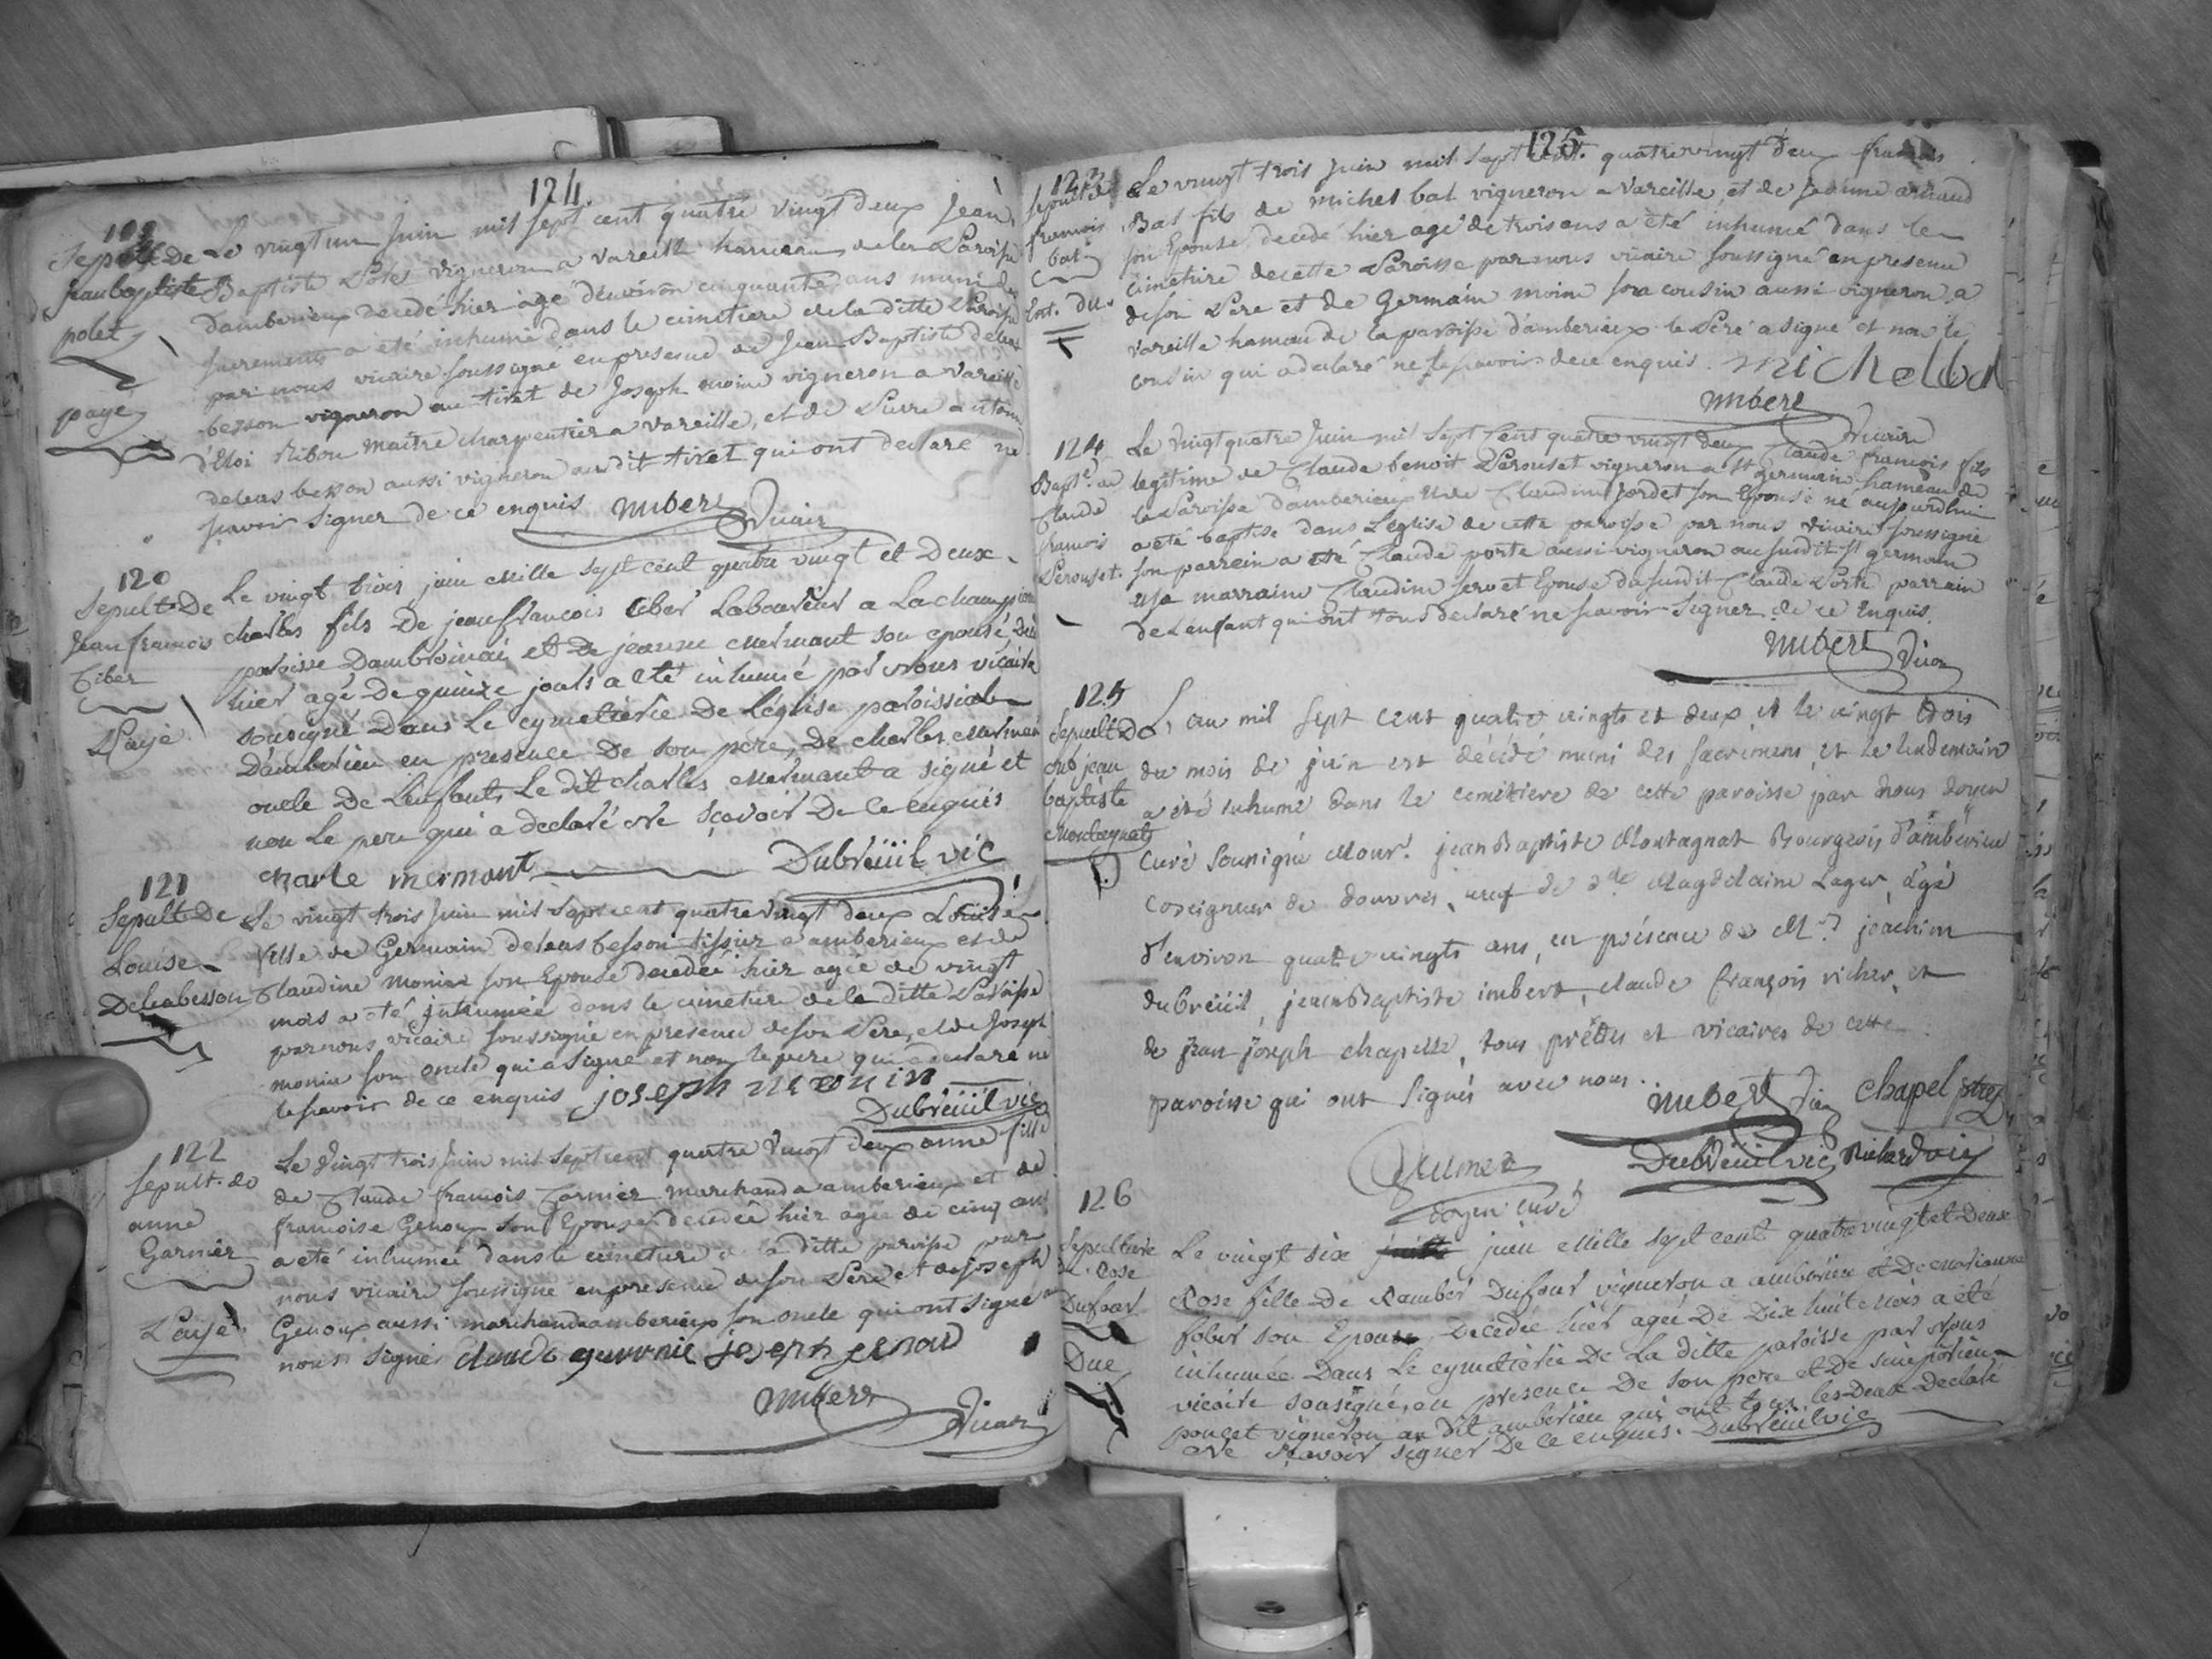 124
119
Sepult. De
jean baptiste
polet
payé
Le vingt un Juin mil sept cent quatre vingt deux Jean
Baptiste Polet vigneron a vareille hameau de la Paroisse
damberieux decedé hier agé d'environ cinquante ans muni des
sacrements a été inhumé dans le cimetiere de la ditte Paroisse
par nous vicaire soussigné en presence de Jean Baptiste deleas
besson vigneron au tiret de Joseph moine vigneron a vareille
d'Eloi Ribou maitre charpentier a vareille, et de Pierre antoine
deleas besson aussi vigneron audit tiret qui ont declaré ne
scavoir signer de ce enquis imbert Vicair
120
Sepult. De
Jean francois
Tiber
Payé
Le vingt trois juin Mille sept cent quatre vingt et Deux
charles fils De jean francois Laboureur a La
paroisse Dambroinai et De jeanne Mermant son epouse Decedé
hier agé De quinze jours a eté inhumé par Nous vicaire
sousigné Dans Le cymetierie De Leglise paroissiale
Dambérieu en presence De son pere, De charles Mermant
oncle De Lenfant, Le dit charles Mermant a signé et
non Le pere qui a declaré Ne sçavoir De Ce enquis
charle mermont Dubreüil vic
121
Sepult. De
Louise
Deleabesson
Le vingt trois Juin mil sept cent quatre vingt deux Louise
fille de Germain deleas besson tissier a amberieux et de
Claudine monin son Epouse decedée hier agée de vingt
mois a été inhumée dans le cimetiere de la ditte Paroisse
par nous vicaire soussigné en presence de son Pere, et de Joseph
monin son oncle qui a signé et non le pere qui a declaré ne
le scavoir de ce enquis joseph monin
Dubreüil vic
122
Sepult. de
anne
Garnier
Payé
Le vingt trois Juin mil sept cent quatre vingt deux anne fille
de Claude francois Garnier marchand a amberieux et de
francoise Genoux son Epouse decedée hier agée de cinq ans
a eté inhumée dans le cimetiere de la ditte paroisse par
nous vicaire soussigné en presence de son Pere et de Joseph
Genoux aussi marchand a amberieux son oncle qui ont signé
nous signé claude joseph genou
imbert Vicair
125
123
Sepult. de
francois
bal
Ent. due
Le vingt trois Juin mil sept cent quatre vingt deux francois
Bal fils de michel bal vigneron a vareille et de Jeanne
son Epouse decedé hier agé de trois ans a été inhumé dans le
cimetiere de cette Paroisse par nous vicaire soussigné en presence
de son Pere et de Germain moine son cousin aussi vigneron a
vareille hameau de la paroisse d'amberieux le Pere a signé et non le
cousin qui a declaré ne le scavoir de ce enquis. michel bal
imbert Vicair
124
Bapt. de
Claude
francois
Perouset
Le vingt quatre Juin mil sept cent quatre vingt deux Claude francois fils
legitime de Claude benoit Perouset vigneron a St germain hameau de
la Paroisse d'amberieux et de Claudine Jordet son Epouse né aujourdhui
a été baptisé dans L'eglise de cette paroisse par nous vicaire soussigné
son parrein a eté Claude porte aussi vigneron au susdit St germain
et sa marraine Claudine Epouse du susdit Claude Porte parrain
de L'enfant qui ont tous declaré ne scavoir signer de ce Enquis.
imbert Vicair
125
Sepult. De
jean
baptiste
Montagnat
L'an mil sept cent quatre vingts et deux et le vingt trois
du mois de juin est décédé muni des sacrémens, et le lendemain
a été inhumé dans le cimétiere de cette paroisse par nous doyen
curé soussigné Monsr. jean Baptiste Montagnat Bourgeois d'ambérieu
coseigneur de douvres, veuf de dlle Magdelaine Lager, âgé
d'environ quatre vingts ans, en présence de Mrs joachim
dubreüil, jean Baptiste imbert, claude françois richer, et
de jean joseph chapelle, tous prêtres et vicaires de cette
paroisse qui ont signés avec nous.
imbert Vic chapel ptre
Dubreüil vic vic
doyen curé
126
Sepulture
de Rose
Dufour
Due
Le vingt six juin Mille sept cent quatre vingt et Deux
Rose fille De Rambér Dufour vigneron a ambérieu et De Marianne
son Epouse Decedée hier agée De Dix huit Mois a été
inhumée Dans Le cymetierie De La ditte paroisse par Nous
vicaire sousigné, en presence De son pere et De
poncet vigneron au Dit amberieu qui ont tous les Deux Declaré
Ne sçavoir signer De Ce enquis. Dubreüil vic